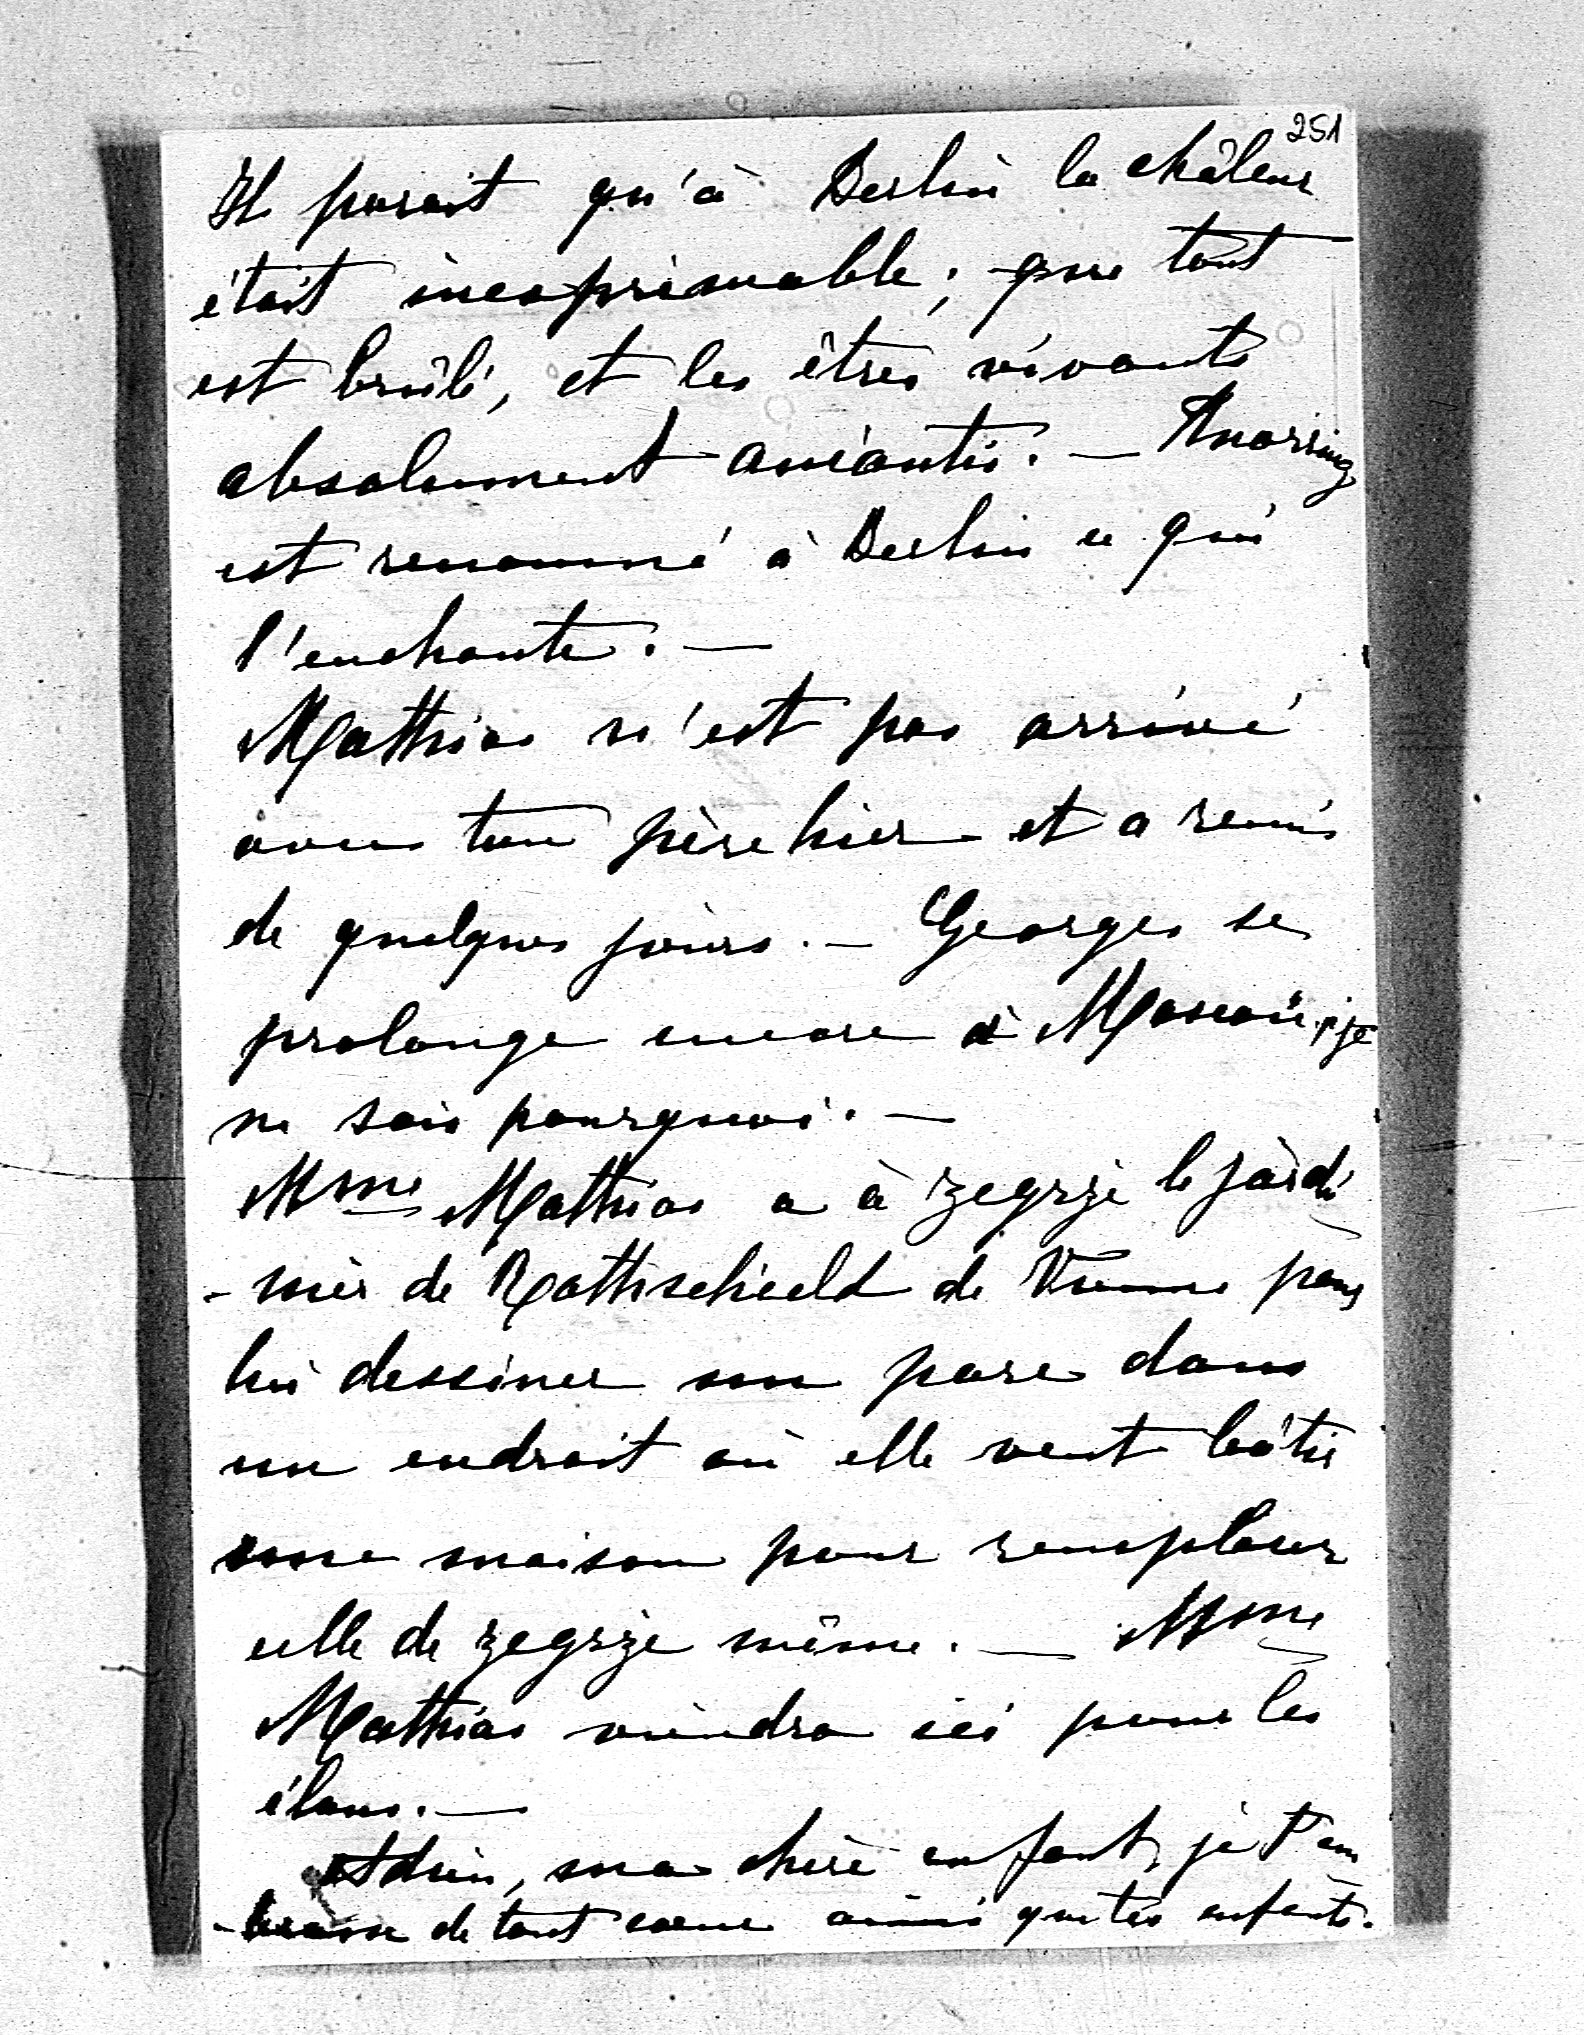 251
Il parait qu'à Berlin la châleur
était inexprimable; que tout
est brûlé, et les êtres vivants
absolument anéantis. — Knorring
est renommé à Berlin ce qui
l'enchante. —
Mathias n'est pas arrivé
avec ton père hier et a remis
de quelques jours. — Georges se
prolonge encore à Moscou, je
ne sais pourquoi. —
Mme Mathias a à Zegrze le jardi
- nier de Rothschield de Vienne pour
lui dessiner un parc dans
un endroit où elle veut bâtir
une maison pour remplacer
celle de Zegrze même. — Mme
Mathias viendra ici pour les
élans. —
Adieu, ma chère enfant, je t'em
- brasse de tout coeur ainsi que tes enfants.